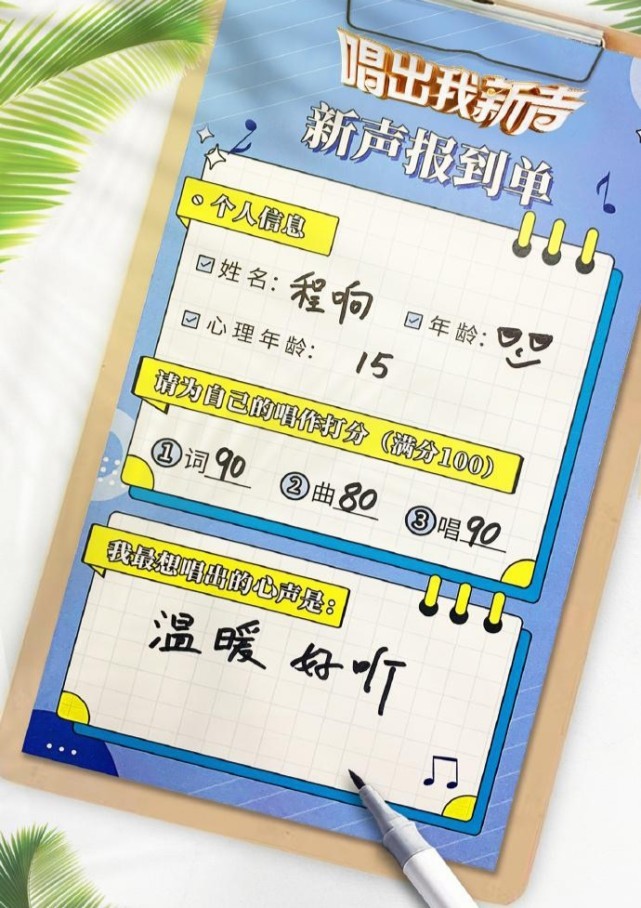 唱出我新声
新声报到单
个人信息
姓名：程响 年龄：
心理年龄：15
请为自己的唱作打分（满分100）
①词90 ②曲80 ③唱90
我最想唱出的心声是：
温暖 好听